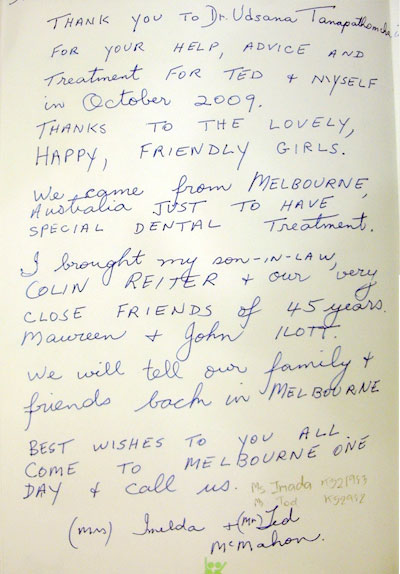 THANK YOU TO Dr. Udsana Tanapathomchai
FOR YOUR HELP, ADVICE AND
Treatment FOR TED & MYSELF
in October 2009.
THANKS TO THE LOVELY,
HAPPY, FRIENDLY GIRLS.
We came from MELBOURNE,
Australia JUST TO HAVE
SPECIAL DENTAL Treatment.
I brought my son-in-law,
COLIN REITER & our very
CLOSE FRIENDS of 45 years.
Maureen & John ILOTT.
We will tell our family &
friends back in MELBOURNE
BEST WISHES TO YOU ALL.
COME TO MELBOURNE ONE
DAY & call us.
Ms Imada
Mr. Tod
(Mrs) Imelda + (Mr) Ted
McMahon.